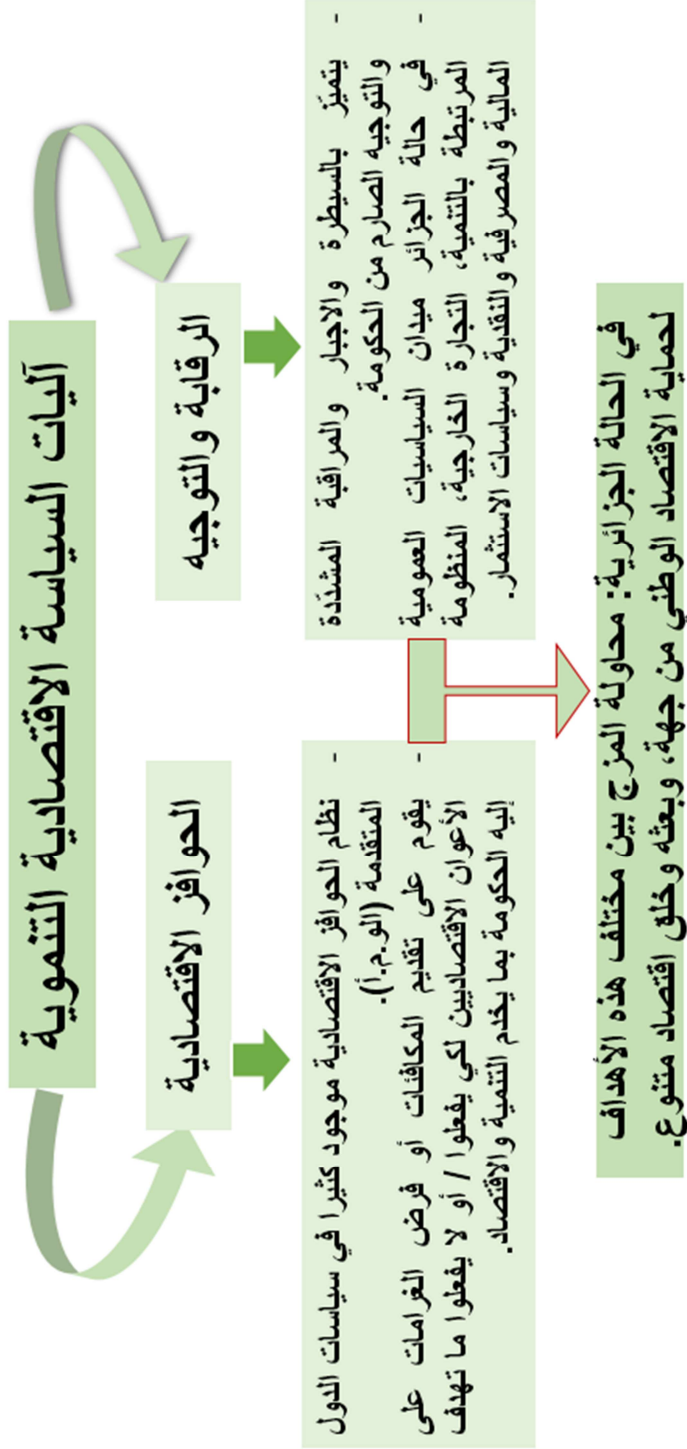 آليات السياسة الاقتصادية التنموية
الرقابة والتوجيه
- يتميّز بالسيطرة والاجبار والمراقبة المشدّدة
والتوجيه الصارم من الحكومة.
- في حالة الجزائر ميدان السياسيات العمومية
المرتبطة بالتنمية، التجارة الخارجية، المنظومة
المالية والمصرفية والنقدية وسياسات الاستثمار.
الحوافز الاقتصادية
- نظام الحوافز الاقتصادية موجود كثيرا في سياسات الدول
المتقدمة (الو.م.أ).
- يقوم على تقديم المكافئات أو فرض الغرامات على
الأعوان الاقتصاديين لكي يفعلوا / أو لا يفعلوا ما تهدف
إليه الحكومة بما يخدم التنمية والاقتصاد.
في الحالة الجزائرية: محاولة المزج بين مختلف هذه الأهداف
لحماية الاقتصاد الوطني من جهة، وبعثه وخلق اقتصاد متنوع.